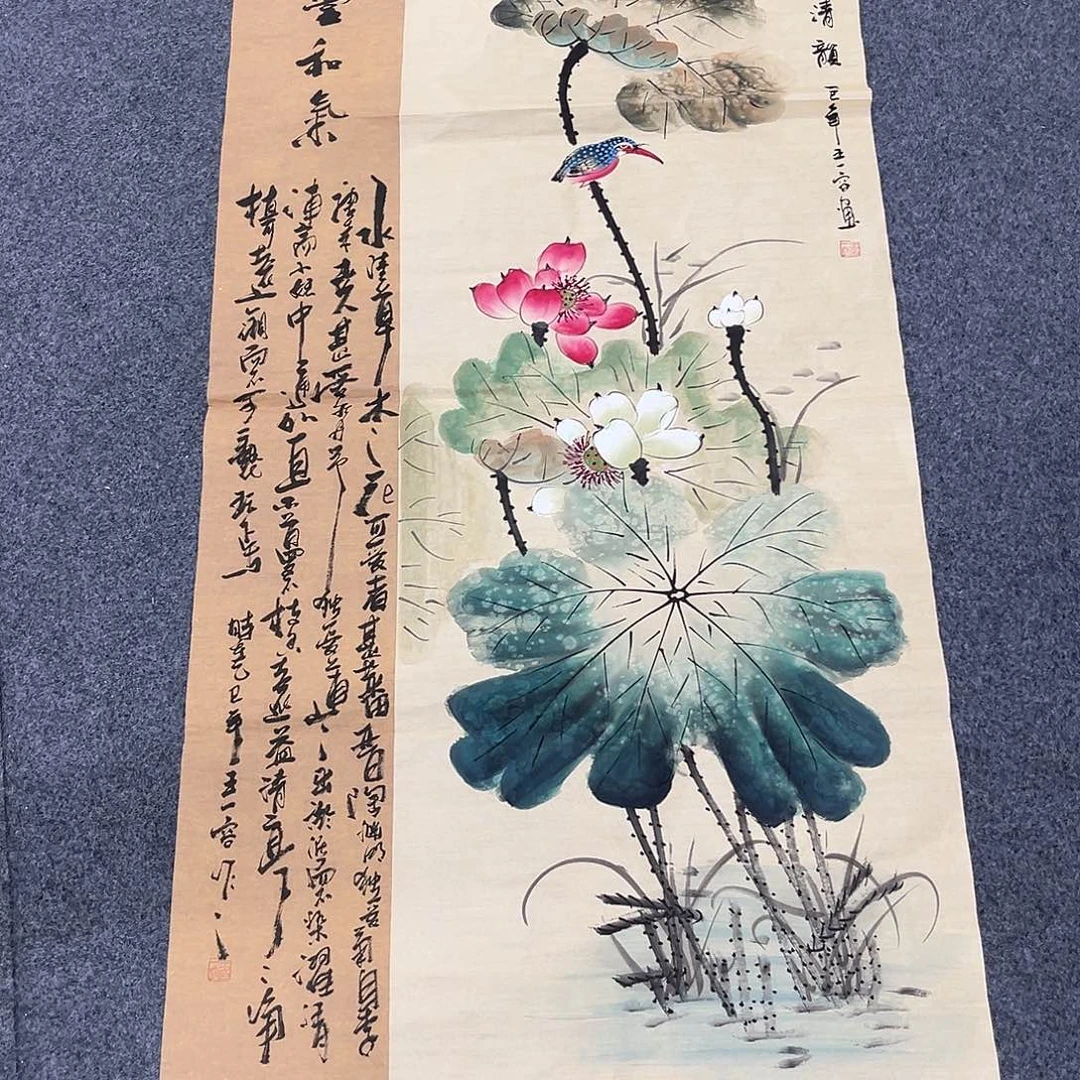 清韻
巳年王一容畫
和氣
水陸草木之花可愛者甚蕃晉陶淵明獨愛菊自李
唐來人甚愛牡丹予獨愛蓮之出淤泥而不染濯清
漣而不妖中通外直不蔓不枝香遠益清亭亭淨
植可遠觀而不可褻玩焉
時在乙巳年王一容作